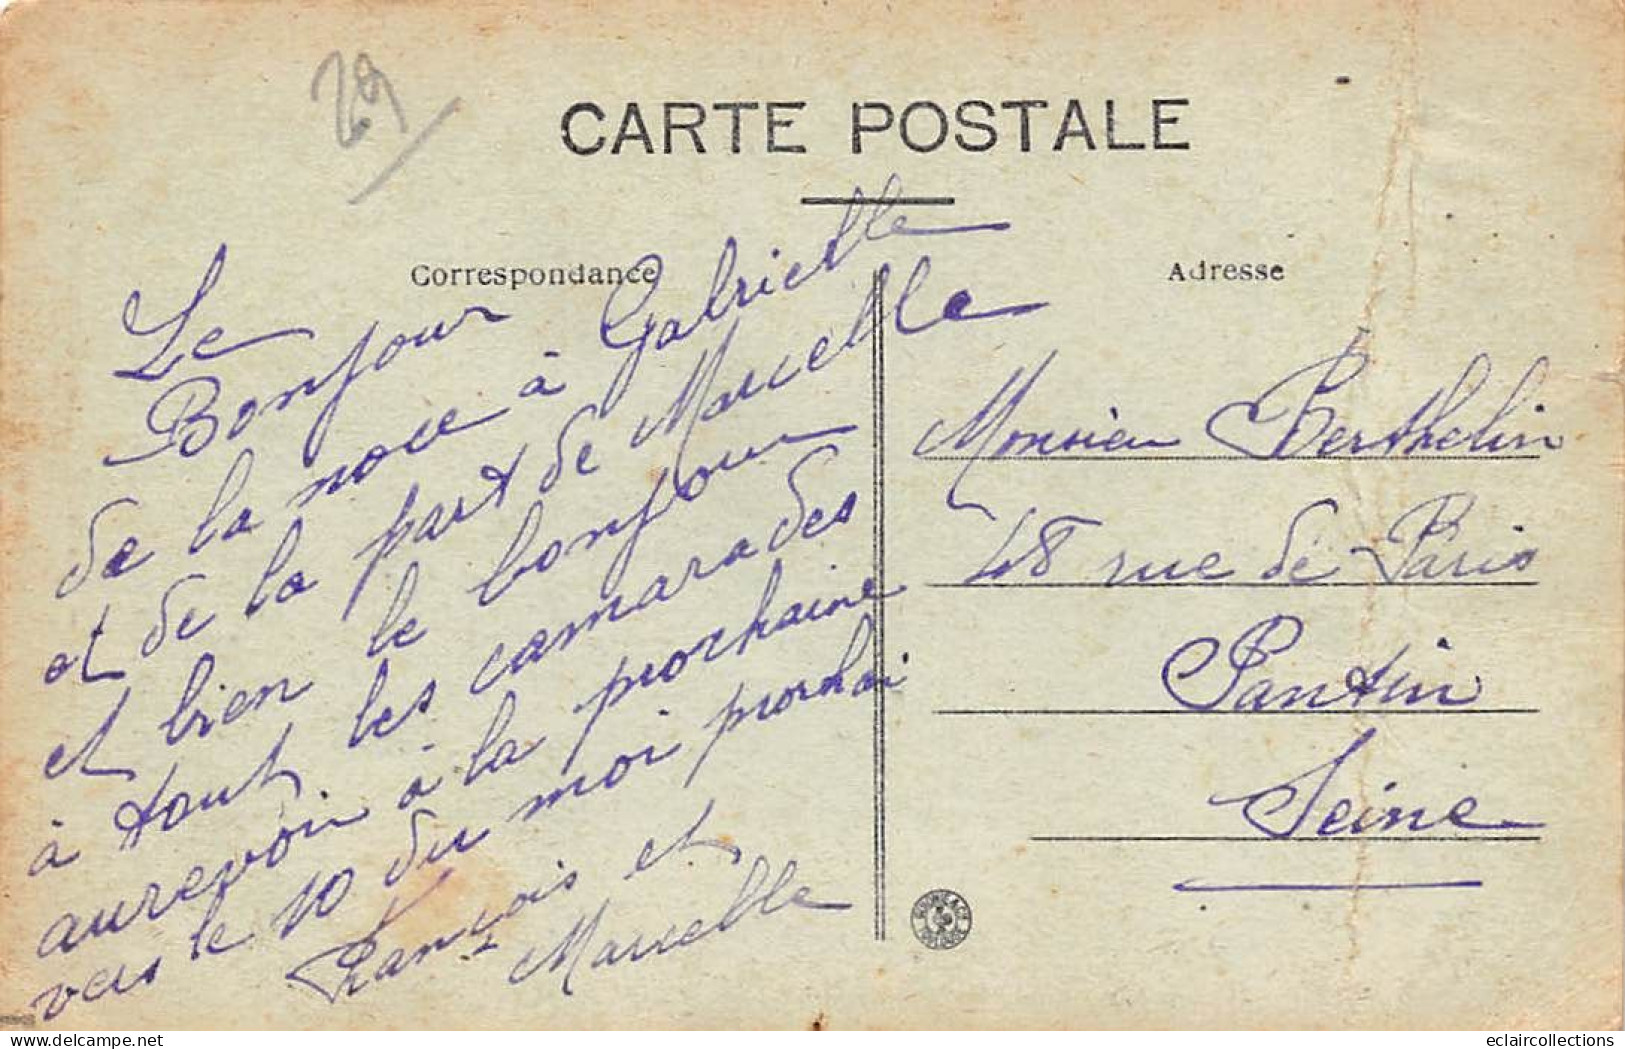 29
CARTE POSTALE
Correspondance
Adresse
Le
Bonjour
de la noce à Gabrielle
et de la part de Marcelle
et bien le bonjour
à tout les camarades
aurevoir à la prochaine
vers le 10 du moi prochai
François et
Marcelle
Monsieu Berthelin
48 rue de Paris
Pantin
Seine
delcampe.net
eclaircollections